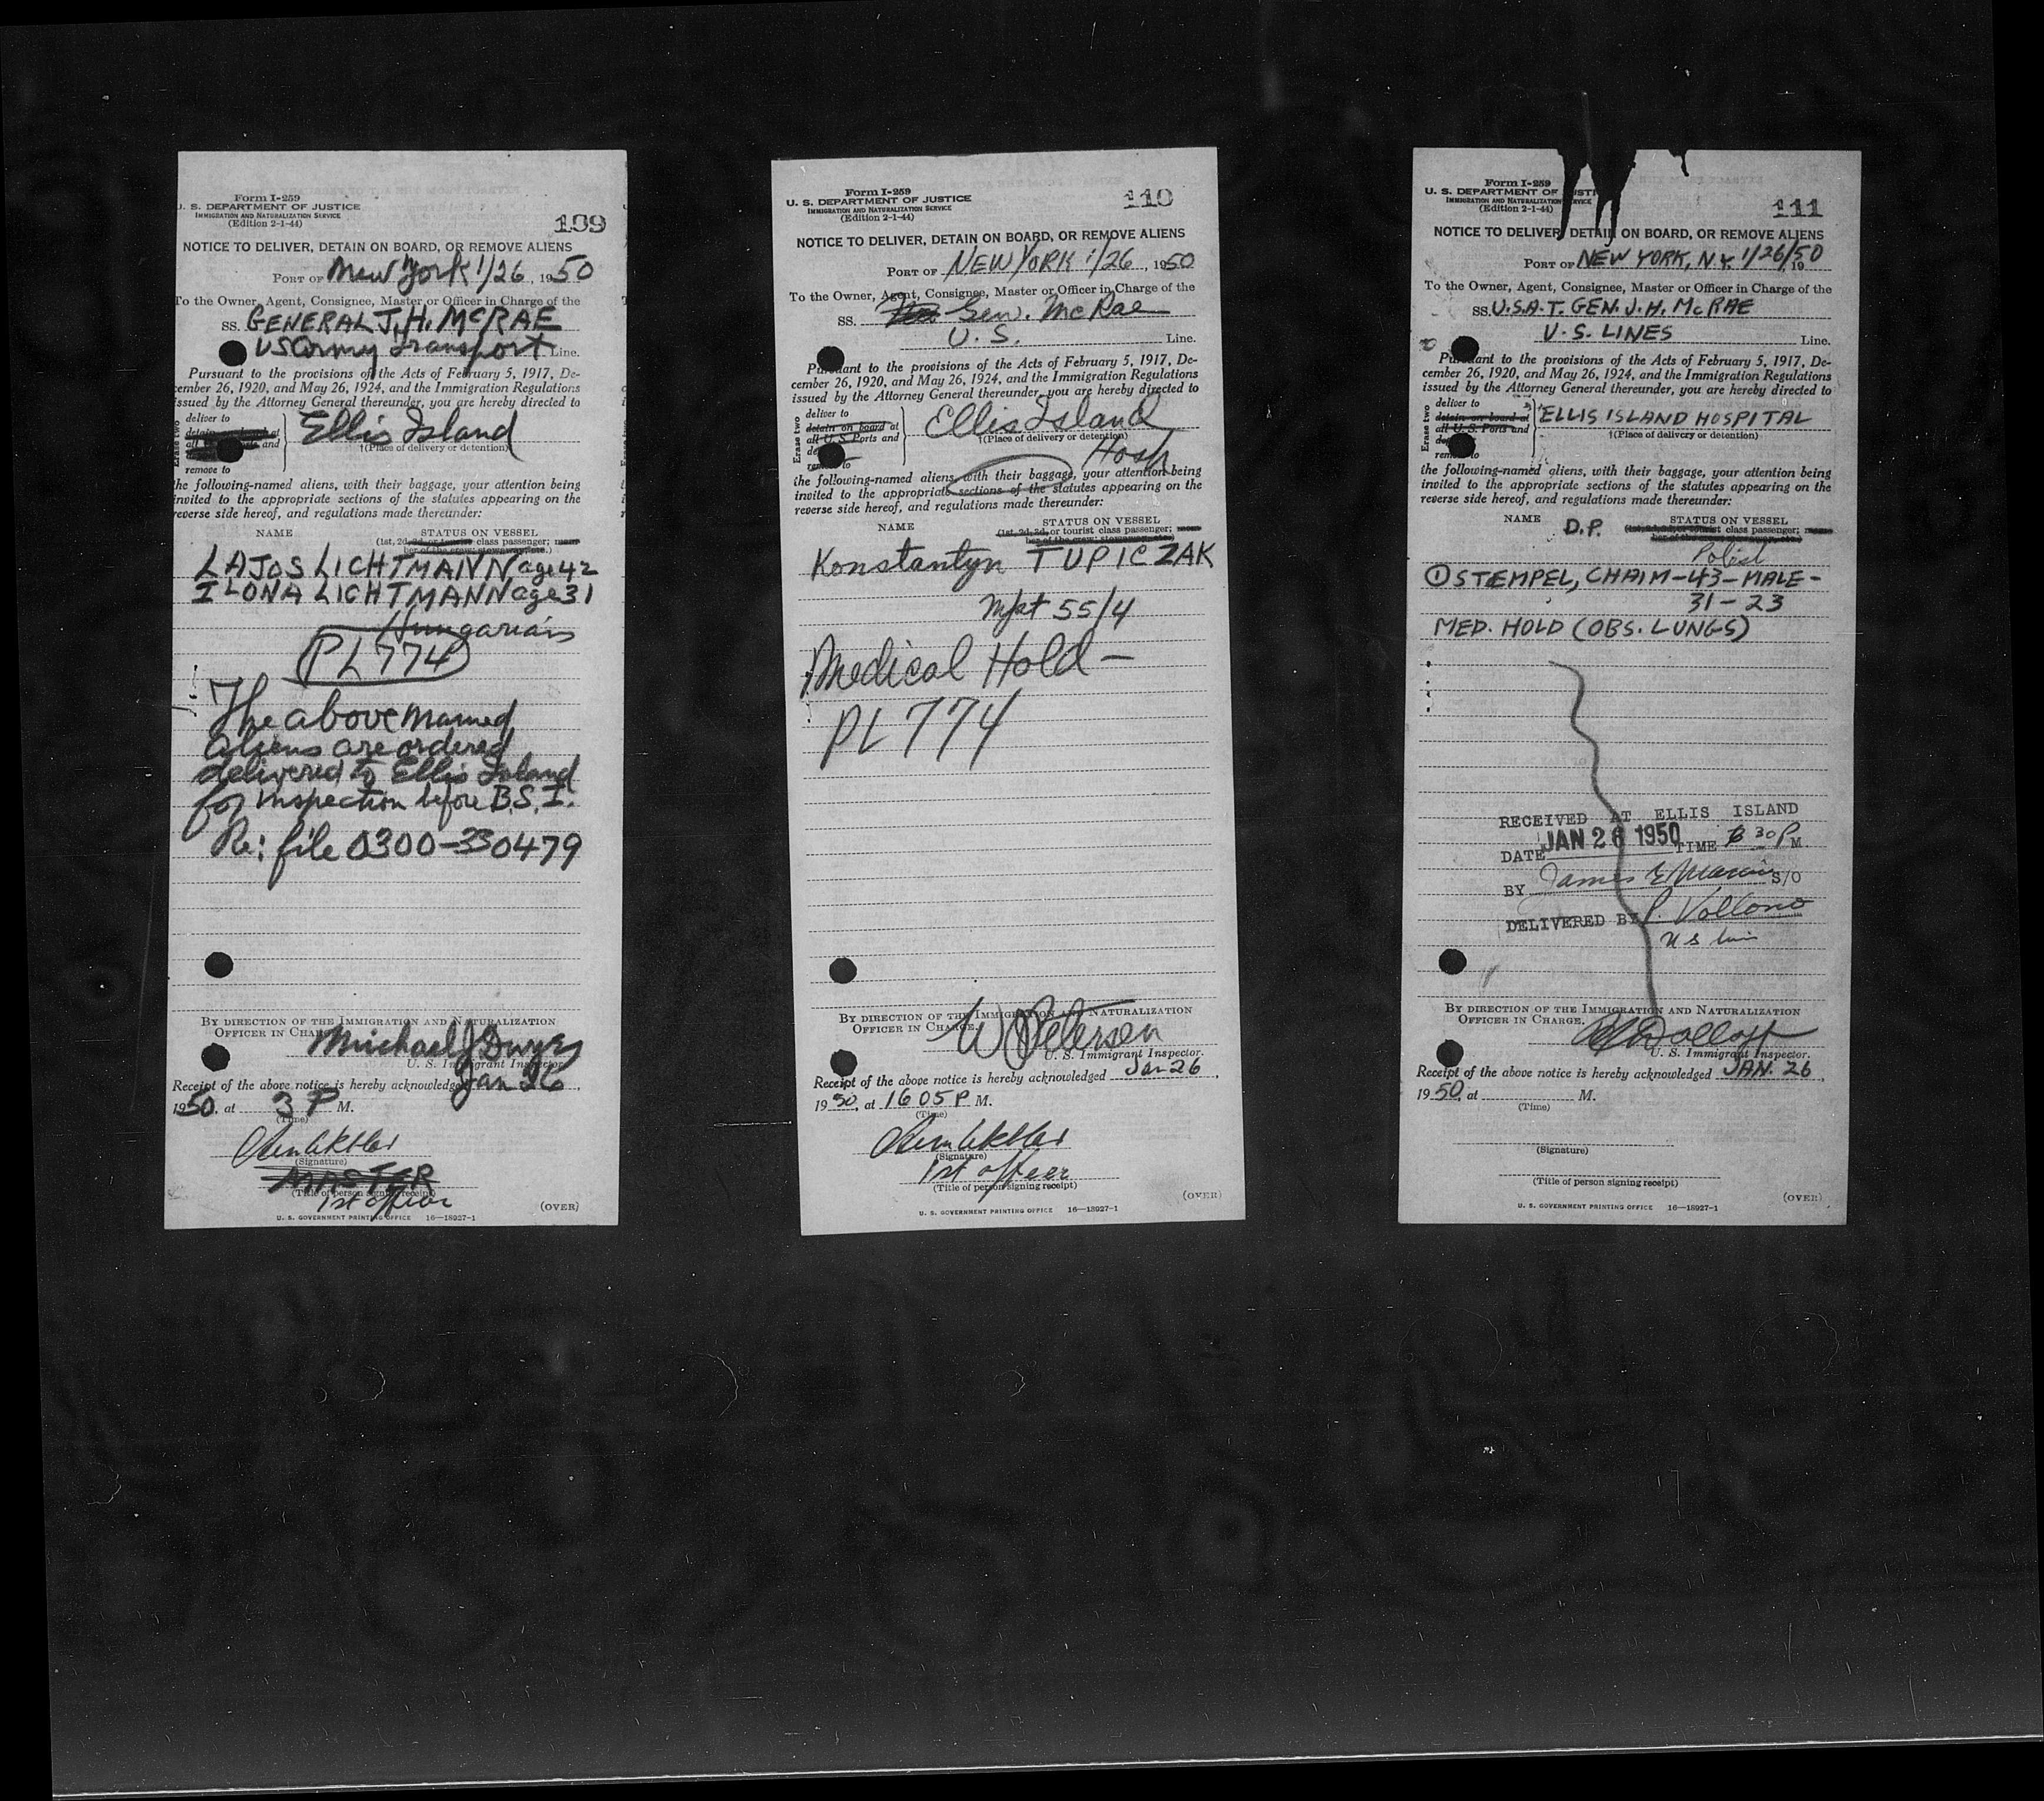 Form I-259
U. S. DEPARTMENT OF JUSTICE
IMMIGRATION AND NATURALIZATION SERVICE
(Edition 2-1-44)
109
NOTICE TO DELIVER, DETAIN ON BOARD, OR REMOVE ALIENS
PORT OF New York 1/26, 1950
To the Owner, Agent, Consignee, Master or Officer in Charge of the
SS. GENERAL J.H. McRAE
US Army Transport Line.
Pursuant to the provisions of the Acts of February 5, 1917, De-
cember 26, 1920, and May 26, 1924, and the Immigration Regulations
issued by the Attorney General thereunder, you are hereby directed to
Erase two
deliver to
detain on board at
all U.S. Ports and
remove to
Ellis Island
†(Place of delivery or detention)
the following-named aliens, with their baggage, your attention being
invited to the appropriate sections of the statutes appearing on the
reverse side hereof, and regulations made thereunder:
NAME STATUS ON VESSEL
(1st, 2d, 3d, or tourist class passenger; mem-
ber of the crew; stowaway, etc.)
LAJOS LICHTMANN age 42
ILONA LICHTMANN age 31
Hungarians
PL 774
The above named
aliens are ordered
delivered to Ellis Island
for inspection before B.S.I.
Re: file 0300-330479
BY DIRECTION OF THE IMMIGRATION AND NATURALIZATION
OFFICER IN CHARGE.
Michael J Dwyer
U. S. Immigrant Inspector.
Receipt of the above notice is hereby acknowledged Jan 26
1950, at 3 P M.
(Time)
(Signature)
MASTER
1st officer
(Title of person signing receipt)
(OVER)
U. S. GOVERNMENT PRINTING OFFICE 16—18927-1
Form I-259
U. S. DEPARTMENT OF JUSTICE
IMMIGRATION AND NATURALIZATION SERVICE
(Edition 2-1-44)
110
NOTICE TO DELIVER, DETAIN ON BOARD, OR REMOVE ALIENS
PORT OF NEW YORK 1/26, 1950
To the Owner, Agent, Consignee, Master or Officer in Charge of the
SS. Gen. McRae
U.S. Line.
Pursuant to the provisions of the Acts of February 5, 1917, De-
cember 26, 1920, and May 26, 1924, and the Immigration Regulations
issued by the Attorney General thereunder, you are hereby directed to
Erase two
deliver to
detain on board at
all U.S. Ports and
remove to
Ellis Island
†(Place of delivery or detention)
Hosp
the following-named aliens, with their baggage, your attention being
invited to the appropriate sections of the statutes appearing on the
reverse side hereof, and regulations made thereunder:
NAME STATUS ON VESSEL
(1st, 2d, 3d, or tourist class passenger; mem-
ber of the crew; stowaway, etc.)
Konstantyn TUPICZAK
55/4
Medical Hold—
PL 774
BY DIRECTION OF THE IMMIGRATION AND NATURALIZATION
OFFICER IN CHARGE.
W Petersen
U. S. Immigrant Inspector.
Receipt of the above notice is hereby acknowledged Jan 26,
1950, at 1605 P M.
(Time)
(Signature)
1st officer
(Title of person signing receipt)
(OVER)
U. S. GOVERNMENT PRINTING OFFICE 16—18927-1
Form I-259
U. S. DEPARTMENT OF JUSTICE
IMMIGRATION AND NATURALIZATION SERVICE
(Edition 2-1-44)
111
NOTICE TO DELIVER, DETAIN ON BOARD, OR REMOVE ALIENS
PORT OF NEW YORK, N.Y. 1/26/50, 19
To the Owner, Agent, Consignee, Master or Officer in Charge of the
SS. U.S.A.T. GEN. J.H. McRAE
U.S. LINES Line.
Pursuant to the provisions of the Acts of February 5, 1917, De-
cember 26, 1920, and May 26, 1924, and the Immigration Regulations
issued by the Attorney General thereunder, you are hereby directed to
Erase two
deliver to
detain on board at
all U.S. Ports and
remove to
ELLIS ISLAND HOSPITAL
†(Place of delivery or detention)
the following-named aliens, with their baggage, your attention being
invited to the appropriate sections of the statutes appearing on the
reverse side hereof, and regulations made thereunder:
NAME D.P. STATUS ON VESSEL
(1st, 2d, 3d, or tourist class passenger; mem-
ber of the crew; stowaway, etc.)
Polish
① STEMPEL, CHAIM-43-MALE-
31-23
MED. HOLD (OBS. LUNGS)
RECEIVED AT ELLIS ISLAND
DATE JAN 26 1950 TIME 30 P M.
BY James E S/O
DELIVERED BY P. Vollono
U S
BY DIRECTION OF THE IMMIGRATION AND NATURALIZATION
OFFICER IN CHARGE.
U. S. Immigrant Inspector.
Receipt of the above notice is hereby acknowledged JAN. 26,
1950, at M.
(Time)
(Signature)
(Title of person signing receipt)
(OVER)
U. S. GOVERNMENT PRINTING OFFICE 16—18927-1